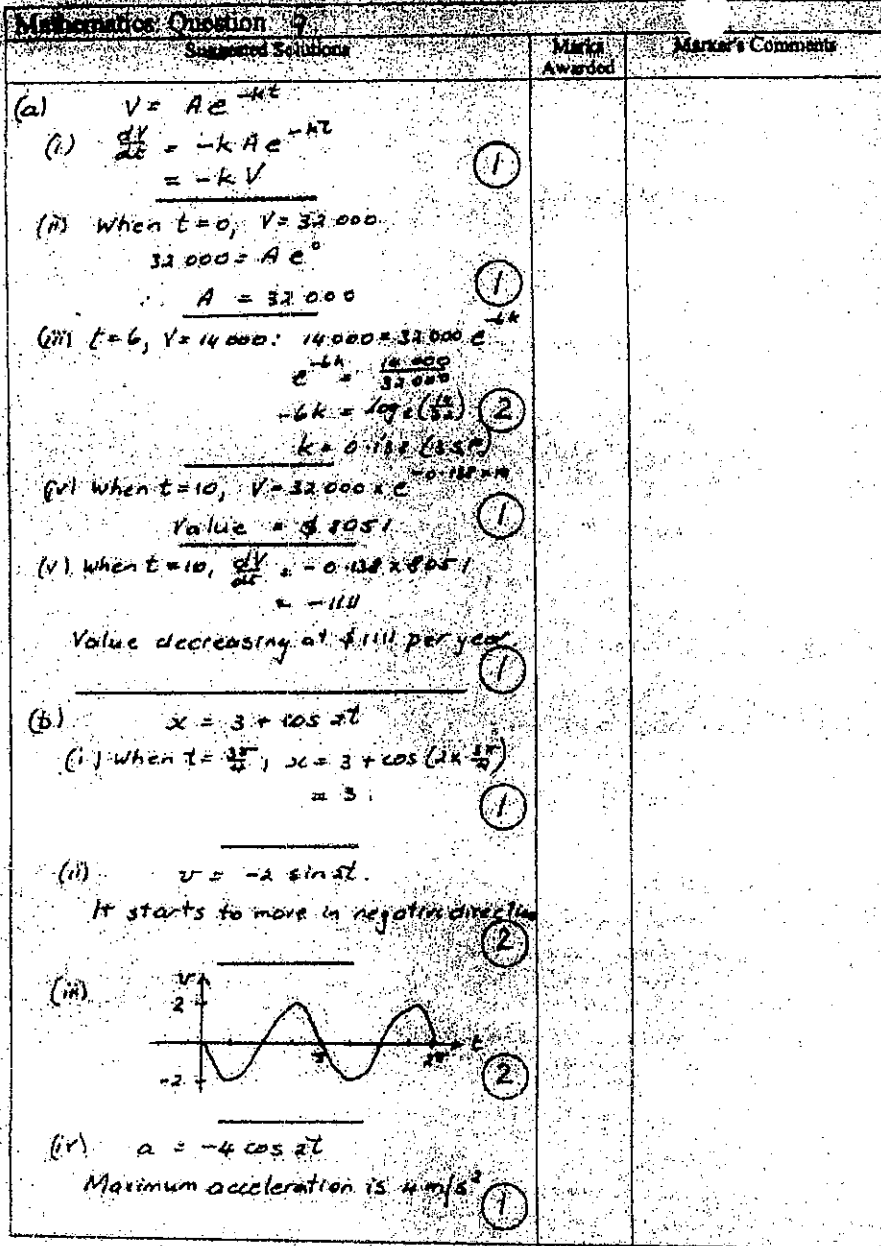 Mathematics Question 9
Suggested Solutions
Marks Awarded
Marker's Comments
(a) V = Ae^{-kt}
(i) dV/dt = -kAe^{-kt}
= -kV
①
(ii) When t=0, V=32 000
32 000 = Ae^0
∴ A = 32 000
①
(iii) t=6, V=14 000: 14 000 = 32 000 e^{-6k}
e^{-6k} = 14 000/32 000
-6k = log e
②
k = 0.138 (3SF)
(iv) when t=10, V=32 000 x e^{-0.138×10}
Value = $8051
①
(v) when t=10, dV/dt = -0.138 x 8051
= -1111
Value decreasing at $1111 per year
①
(b) x = 3 + cos 2t
(i) when t = 3π/4, x = 3 + cos (2x 3π/4)
= 3.
①
(ii) v = -2 sin 2t.
It starts to move in negative direction
②
(iii)
v
2
-2
π
2π
t
②
(iv) a = -4 cos 2t
Maximum acceleration is 4 m/s²
①